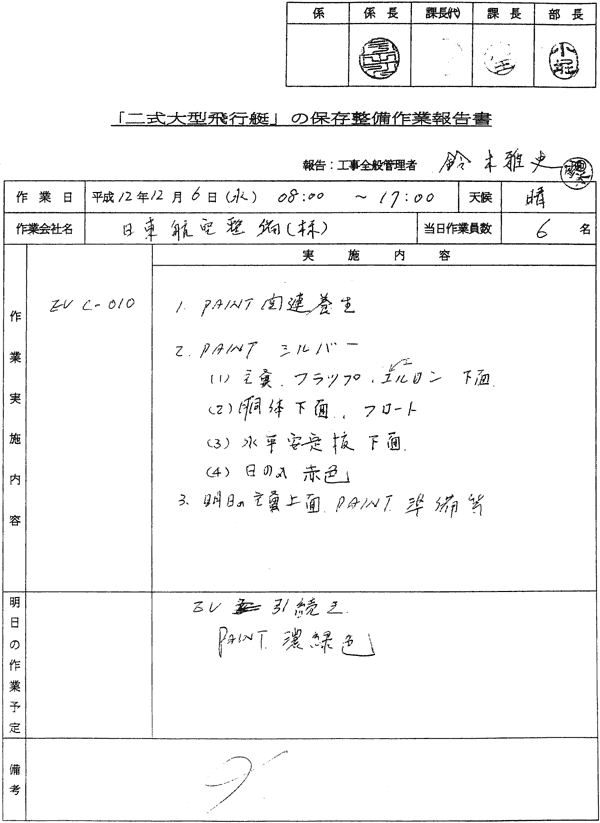 係 係長 課長(代) 課長 部長
小堀
「二式大型飛行艇」の保存整備作業報告書
報告:工事全般管理者 鈴木雅史
作業日 平成12年12月6日(水) 08:00 ~ 17:00 天候 晴
作業会社名 日東航空整備(株) 当日作業員数 6 名
実施内容
作業実施内容
EU C-010
1. PAINT 関連養生
2. PAINT シルバー
(1) 主翼、フラップ、エルロン 下面
(2) 胴体下面、フロート
(3) 水平安定板 下面
(4) 日の丸 赤色
3. 明日の主翼上面 PAINT 準備等
明日の作業予定
EU 引続き
PAINT. 濃緑色
備考